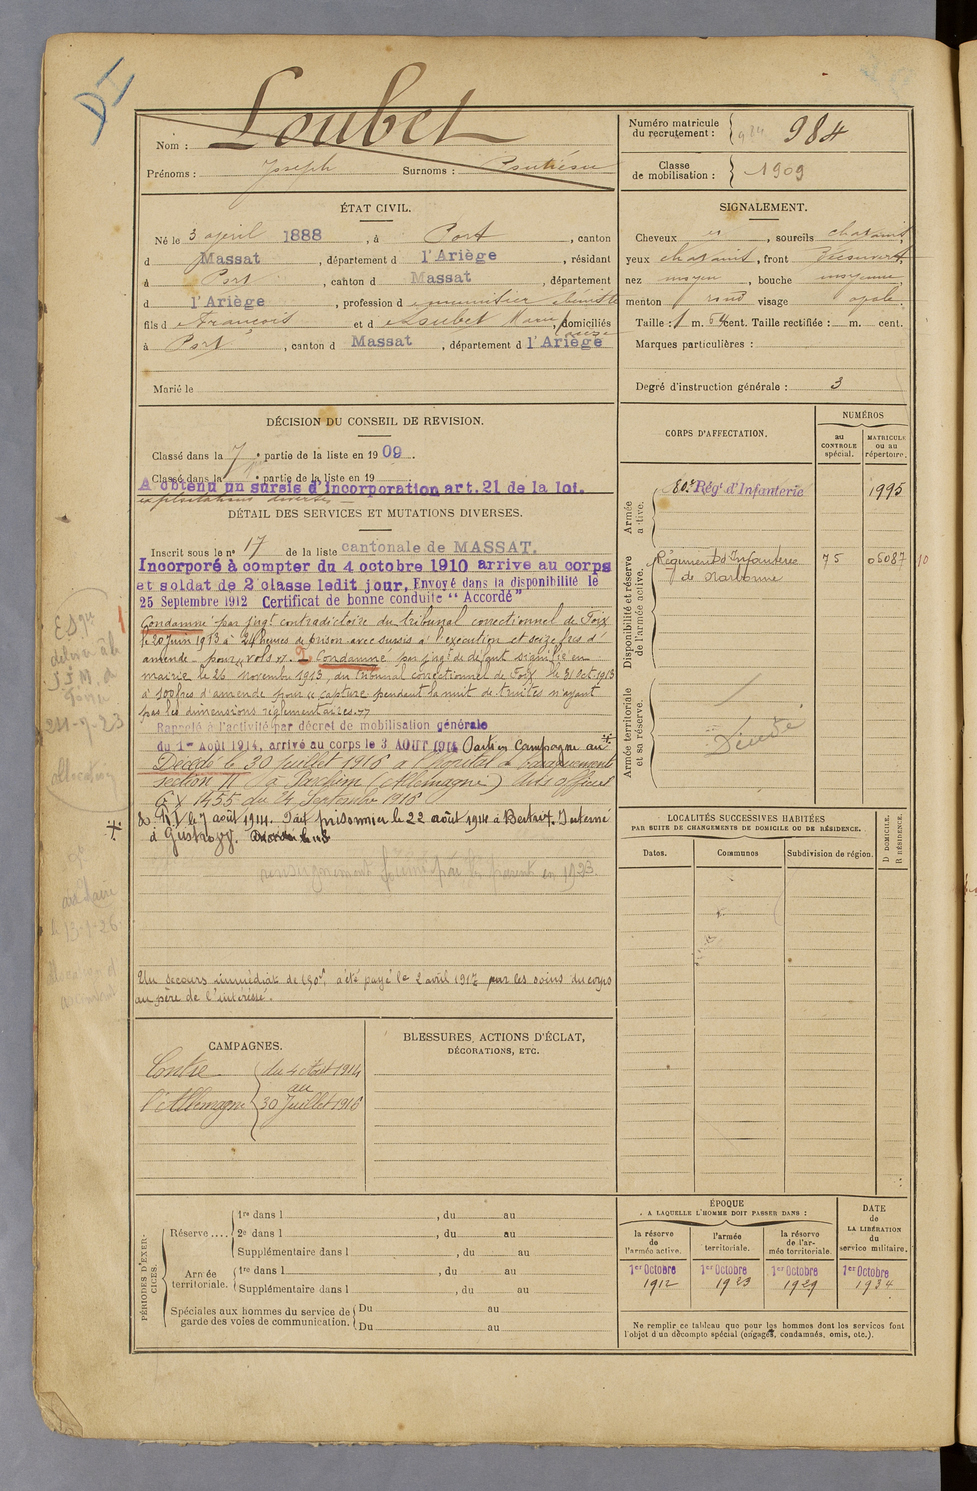 DI
Nom : Loubet
Prénoms : Joseph Surnoms :
Numéro matricule du recrutement : 984
Classe de mobilisation : 1909
ÉTAT CIVIL.
Né le 3 avril 1888, à Port, canton
d Massat, département d l'Ariège, résidant
à Port, canton d Massat, département
d l'Ariège, profession d menuisier ébéniste
fils d François et d Loubet Marie, domiciliés
à Port, canton d Massat, département d l'Ariège
Marié le
SIGNALEMENT.
Cheveux, sourcils châtains
yeux châtains, front découvert
nez moyen, bouche moyenne
menton rond visage ovale
Taille : 1 m. cent. Taille rectifiée : m. cent.
Marques particulières :
Degré d'instruction générale : 3
DÉCISION DU CONSEIL DE REVISION.
Classé dans la 7e partie de la liste en 1909.
Classé dans la e partie de la liste en 19
A obtenu un sursis d'incorporation art. 21 de la loi.
exploitations diverses
DÉTAIL DES SERVICES ET MUTATIONS DIVERSES.
Inscrit sous le n° 17 de la liste cantonale de MASSAT.
Incorporé à compter du 4 octobre 1910 arrive au corps
et soldat de 2e classe ledit jour, Envoyé dans la disponibilité le
25 Septembre 1912 Certificat de bonne conduite "Accordé"
Condamné par jugt contradictoire du tribunal correctionnel de Foix
le 20 juin 1913 à 24 heures de prison avec sursis à l'exécution et seize frs d'
amende pour "vols". Condamné par jugt de défaut signifié en
mairie le 26 novembre 1913, du tribunal correctionnel de Foix le 31 Oct 1913
à 100 frs d'amende pour "capture pendant la nuit de truites n'ayant
pas les dimensions réglementaires."
Rappelé à l'activité par décret de mobilisation générale
du 1er Août 1914, arrivé au corps le 3 AOUT 1914. Parti en Campagne au
Décédé le 30 Juillet 1916 à l'hôpital de baraquements
section II (à Parchim (Allemagne) Avis officiel
1455 du 24 Septembre 1916
80 RI le 7 août 1914. Fait prisonnier le 22 août 1914 à Bertrix. Interné
à Gustrow.
renseignements en 1923.
Un secours immédiat de 150f, a été payé le 2 avril 1917 par les soins du corps
au père de l'intéressé.
24-9-23
allocation
CORPS D'AFFECTATION.
NUMÉROS
au CONTRÔLE spécial.
MATRICULE ou au répertoire.
Armée active.
80e Régt d'Infanterie 1995
Disponibilité et réserve de l'armée active.
Régiment d'Infanterie 75 05087 10
de Narbonne
Armée territoriale et sa réserve.
LOCALITÉS SUCCESSIVES HABITÉES
PAR SUITE DE CHANGEMENTS DE DOMICILE OU DE RÉSIDENCE.
Dates. Communes Subdivision de région. D DOMICILE. R RÉSIDENCE.
CAMPAGNES.
Contre du 4 Août 1914
au
l'Allemagne 30 Juillet 1916
BLESSURES, ACTIONS D'ÉCLAT,
DÉCORATIONS, ETC.
PÉRIODES D'EXERCICES.
Réserve ....
1re dans l , du au
2e dans l , du au
Supplémentaire dans l , du au
Armée territoriale.
1re dans l , du au
Supplémentaire dans l , du au
Spéciales aux hommes du service de garde des voies de communication.
Du au
Du au
ÉPOQUE
A LAQUELLE L'HOMME DOIT PASSER DANS :
la réserve de l'armée active.
l'armée territoriale.
la réserve de l'armée territoriale.
DATE de LA LIBÉRATION du service militaire.
1er Octobre 1912
1er Octobre 1923
1er Octobre 1929
1er Octobre 1934
Ne remplir ce tableau que pour les hommes dont les services font
l'objet d'un décompte spécial (engagés, condamnés, omis, etc.).